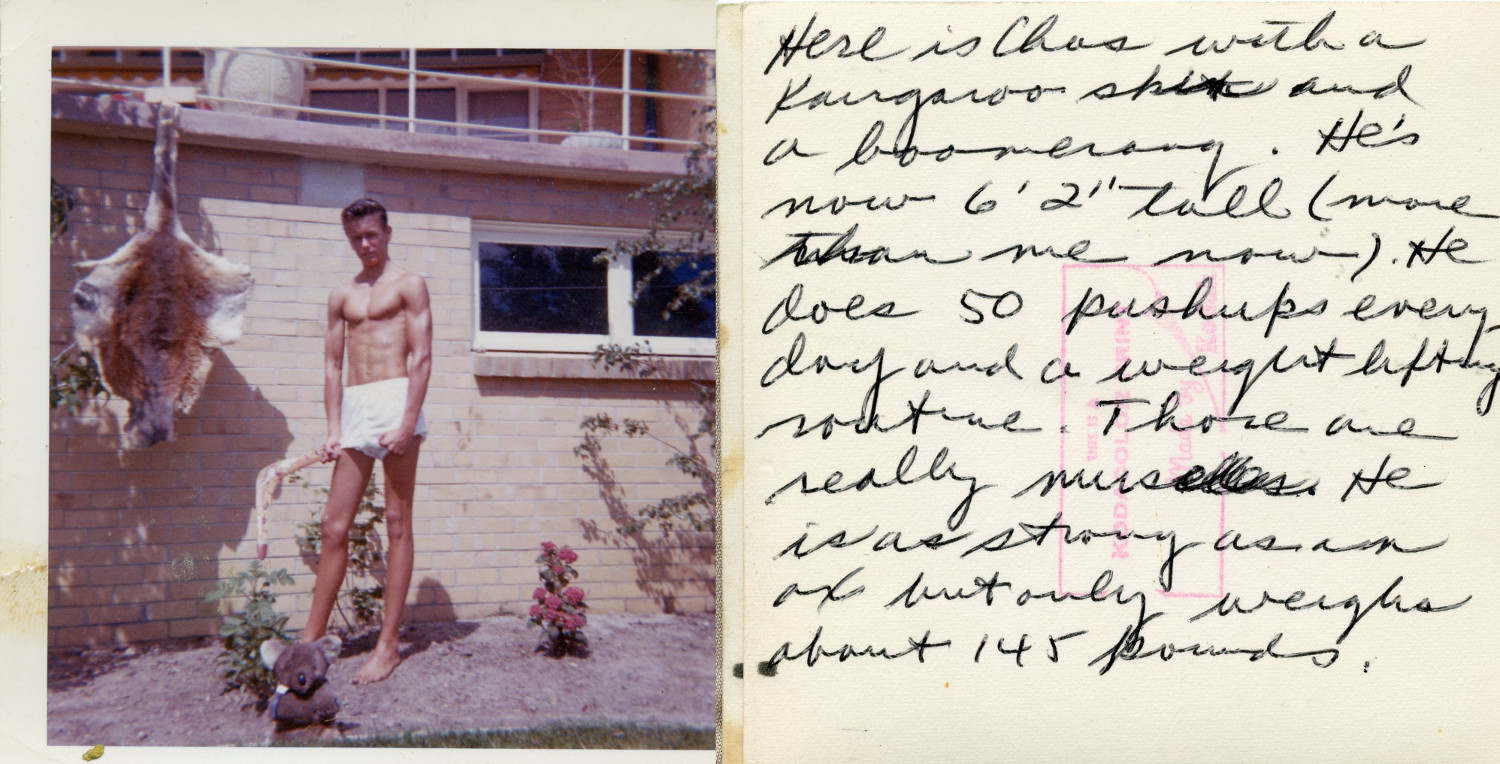 Here is Chas with a
Kangaroo skin and
a boomerang. He's
now 6' 2" tall (more
than me now). He
does 50 pushups every
day and a weight lifting
routine. Those are
really muscles. He
is as strong as an
ox but only weighs
about 145 pounds.
KODACOLOR PRIN
Made by Ko